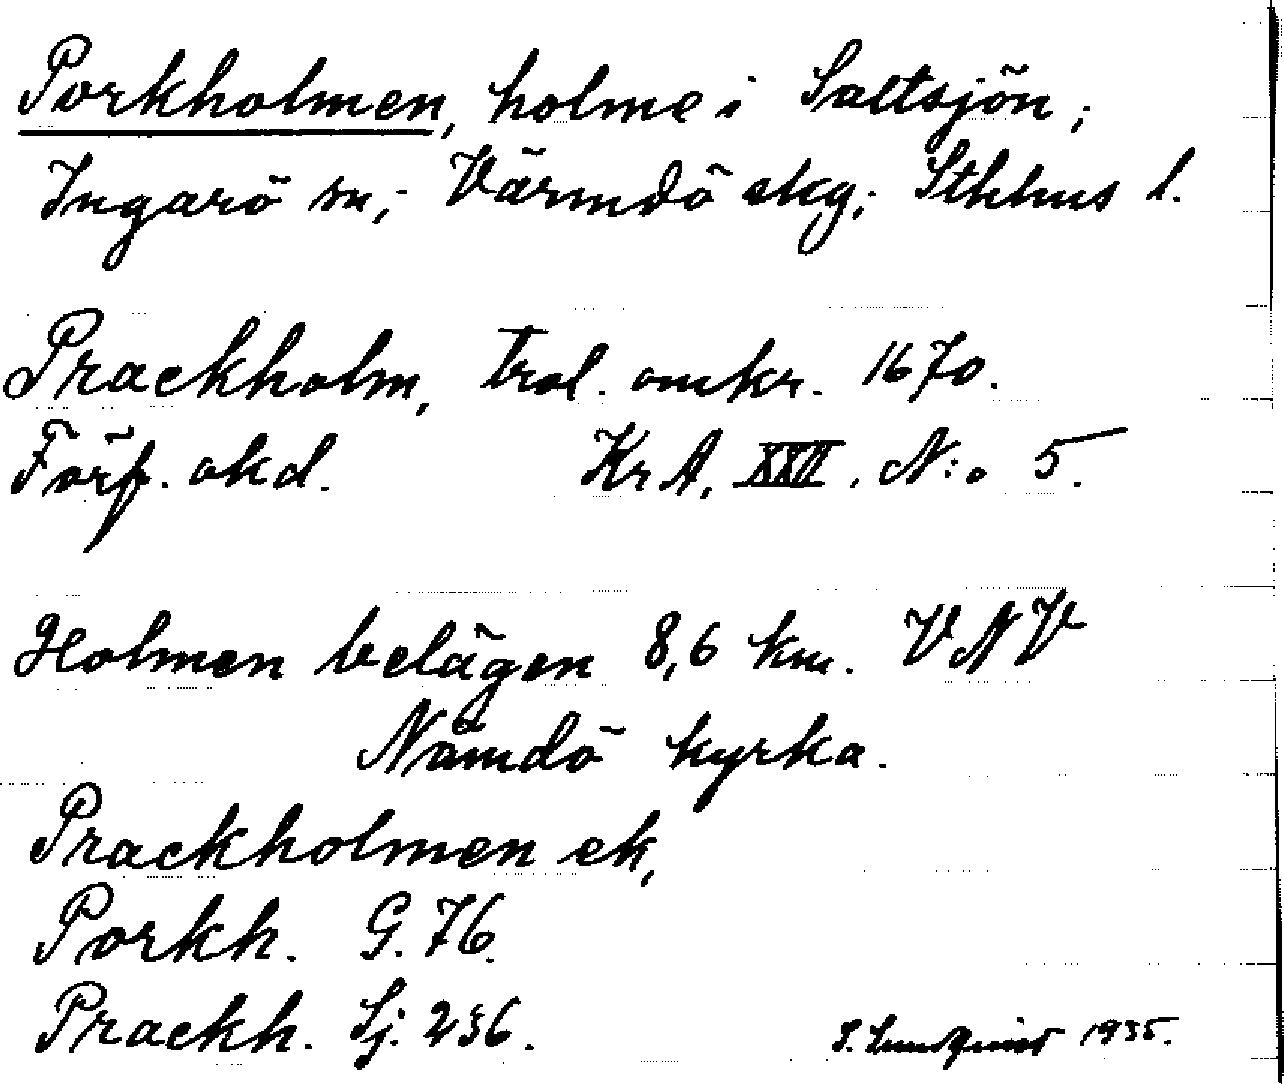 Porkholmen, holme i Saltsjön;
Ingarö sn; Värmdö skg; Sthlms l.
Prackholm, trol. omkr. 1670.
Förf. okd. Kr A, XXII. N:o 5.
Holmen belägen 8,6 km. VNV
Nämdö kyrka.
Prackholmen ek,
Porkh. G. 76.
Prackh. Sj. 236.
S. Lundquist 1935.